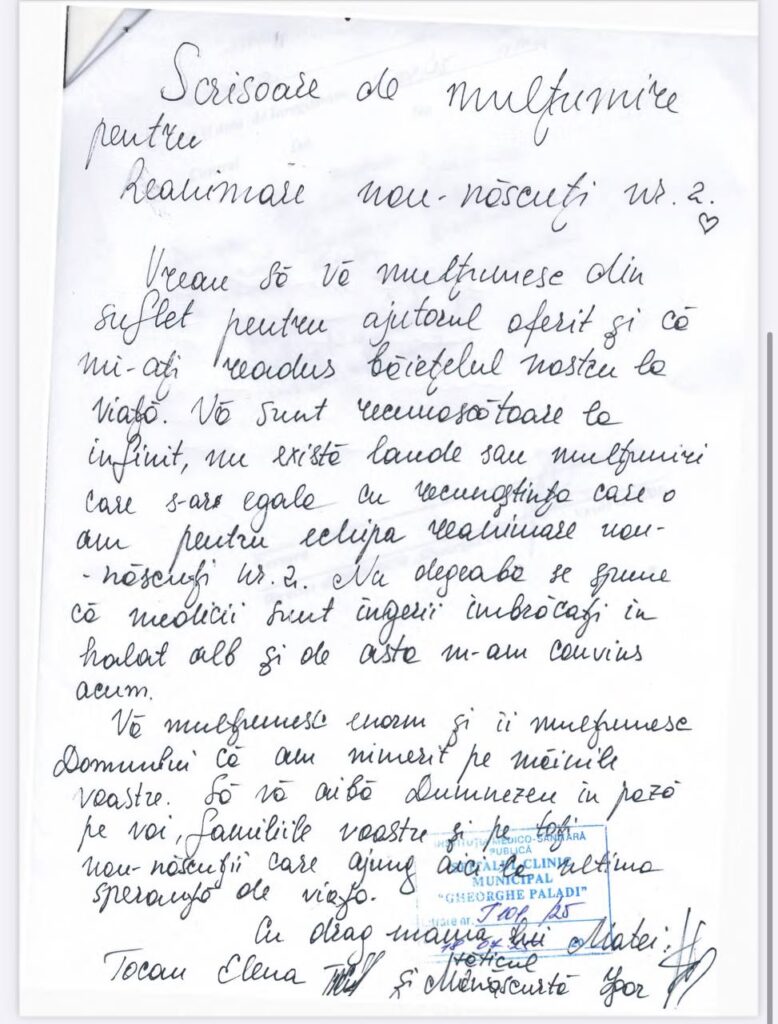 Scrisoare de mulțumire
pentru
Reanimare nou-născuți nr. 2.
Vreau să vă mulțumesc din
suflet pentru ajutorul oferit și că
mi-ați readus băiețelul nostru la
viață. Vă sunt recunoscătoare la
infinit, nu există laude sau mulțumiri
care s-ar egala cu recunoștința care o
am pentru echipa reanimare nou-
-născuți nr. 2. Nu degeaba se spune
că medicii sunt îngerii îmbrăcați în
halat alb și de asta m-am convins
acum.
Vă mulțumesc enorm și îi mulțumesc
Domnului că am nimerit pe mâinile
voastre. Să vă aibă Dumnezeu în pază
pe voi, familiile voastre și pe toți
nou-născuții care ajung aici la ultima
speranță de viață.
Cu drag mama lui Matei:
Tocan Elena și tăticul Mânăscurtă Igor
INSTITUȚIA MEDICO-SANITARĂ
PUBLICĂ
SPITALUL CLINIC
MUNICIPAL
"GHEORGHE PALADI"
Intrare nr.